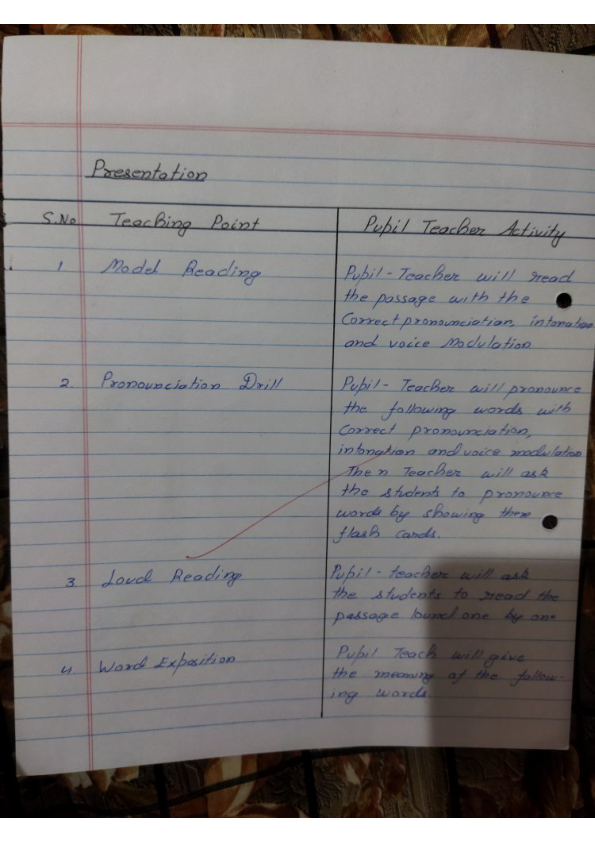 Presentation
S.No Teaching Point Pupil Teacher Activity
1 Model Reading Pupil-Teacher will read
the passage with the
Correct pronounciation, intonation
and voice Modulation
2. Pronounciation Drill Pupil- Teacher will pronounce
the following words with
Correct pronounciation,
intonation and voice modulation
Then Teacher will ask
the students to pronounce
words by showing them
flash cards.
3. Loud Reading Pupil-teacher will ask
the students to read the
passage lound one by one
4 Word Exposition Pupil Teach will give
the meaning of the follow-
ing words.